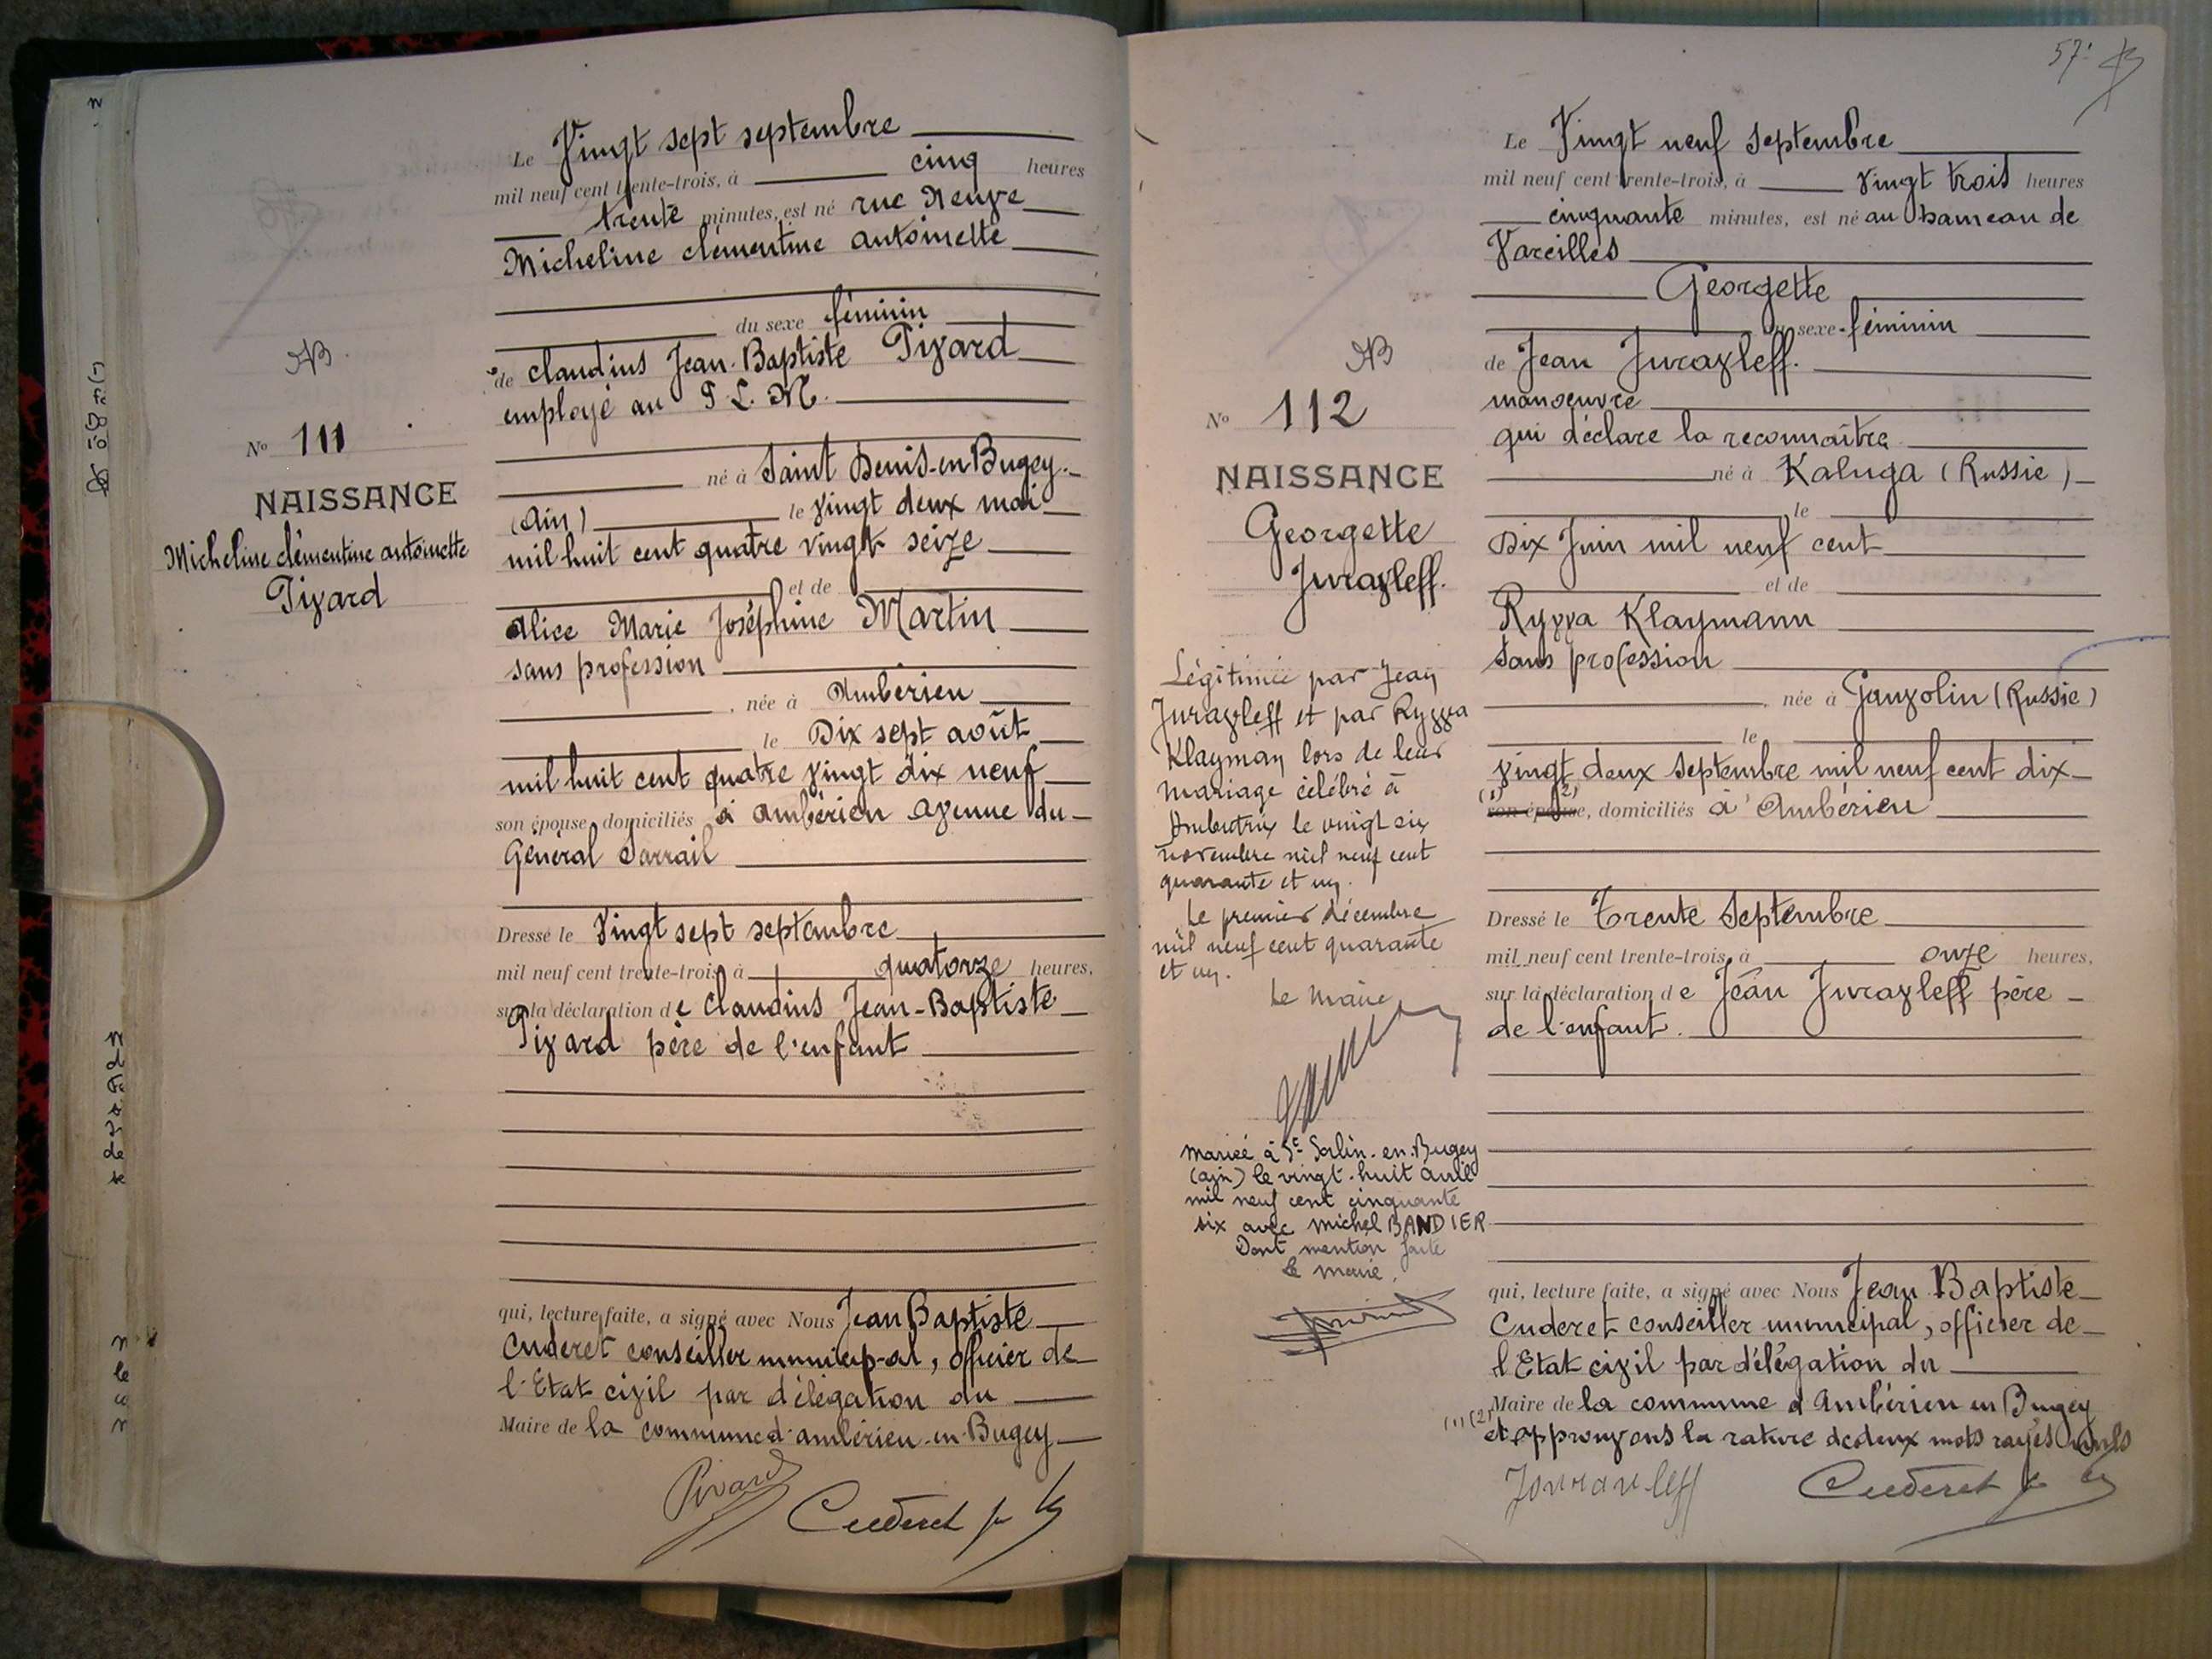 Le Vingt sept septembre
mil neuf cent trente-trois, à cinq heures
trente minutes, est né rue Neuve
Micheline clémentine antoinette
du sexe féminin
de claudius Jean-Baptiste Pivard
employé au P. L. M.
né à Saint Denis-en-Bugey
(Ain) le vingt deux mai
mil huit cent quatre vingt seize
et de
Alice Marie Joséphine Martin
sans profession
, née à Ambérieu
le Dix sept août
mil huit cent quatre vingt dix neuf
son épouse, domiciliés à Ambérieu avenue du
Général Sarrail
Dressé le Vingt sept septembre
mil neuf cent trente-trois, à quatorze heures,
sur la déclaration de claudius Jean-Baptiste
Pivard père de l'enfant
qui, lecture faite, a signé avec Nous Jean Baptiste
Cuderet conseiller municip-al, officier de
l'Etat civil par délégation du
Maire de la commune d'ambérieu-en-Bugey
Pivard
Cuderet
No 111
NAISSANCE
Micheline clémentine antoinette
Pivard
57
Le Vingt neuf Septembre
mil neuf cent trente-trois, à vingt trois heures
cinquante minutes, est né au hameau de
Vareilles
Georgette
du sexe féminin
de Jean Juravleff.
manoeuvre
qui déclare la reconnaître
né à Kaluga (Russie)
le
Dix Juin mil neuf cent
et de
Ryvva Klaymann
Sans profession
, née à Gauvolin (Russie)
le
vingt deux septembre mil neuf cent dix
(1) (2)
son épouse, domiciliés à Ambérieu
Dressé le Trente Septembre
mil neuf cent trente-trois, à onze heures,
sur la déclaration de Jean Juravleff père
de l'enfant.
qui, lecture faite, a signé avec Nous Jean Baptiste
Cuderet conseiller municipal, officier de
l'Etat civil par délégation du
Maire de la commune d'Ambérieu en Bugey
(1) (2) et approuvons la rature de deux mots rayés nuls
Jouravleff
Cuderet
No 112
NAISSANCE
Georgette
Juravleff.
Légitimée par Jean
Juravleff et par Ryvva
Klayman lors de leur
mariage célébré à
Ambutrix le vingt six
novembre mil neuf cent
quarante et un.
Le premier décembre
mil neuf cent quarante
et un.
Le Maire
Mariée à St Sorlin-en-Bugey
(ain) le vingt-huit avril
mil neuf cent cinquante
six avec Michel BANDIER
Dont mention faite
Le Maire,